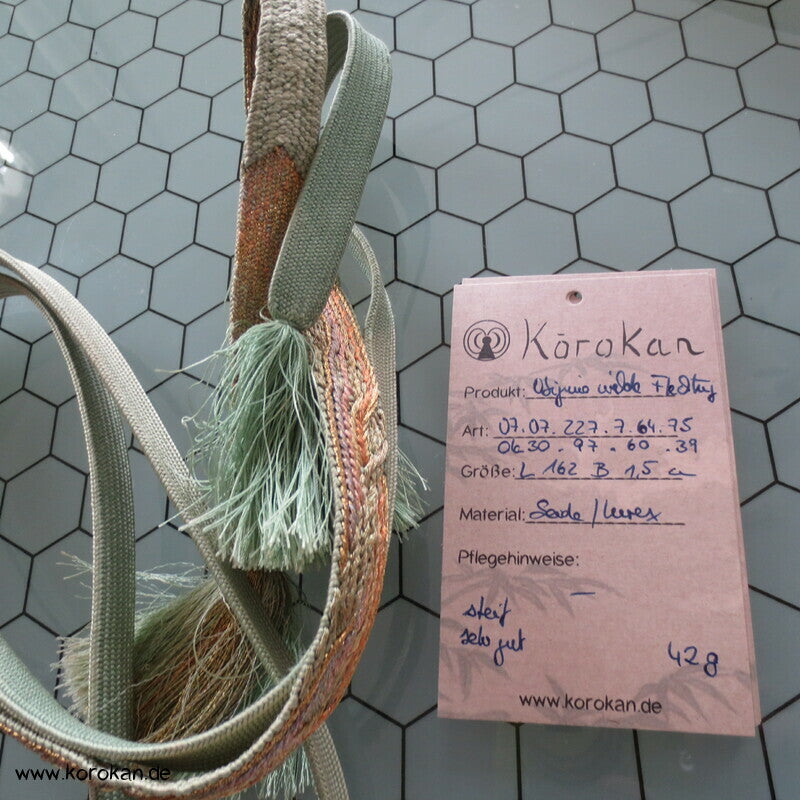 Kōrokan
Produkt: Obijime
Art: 07.07.227.7.64.75
06.30.97.60.39
Größe: L 162 B 1,5 c
Material: Seide / Lurex
Pflegehinweise:
—
steif
sehr gut
42g
www.korokan.de
www.korokan.de